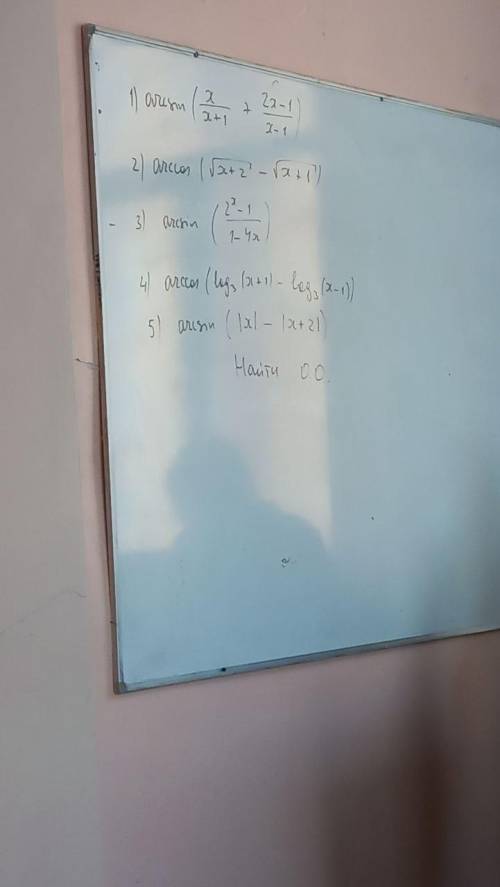 1) arcsin (x/(x+1) + (2x-1)/(x-1))
2) arccos (√(x+2) - √(x+1))
- 3) arcsin ((2ˣ-1)/(1-4x))
4) arccos (log₃(x+1) - log₃(x-1))
5) arcsin (|x| - |x+2|)
Найти О.О.